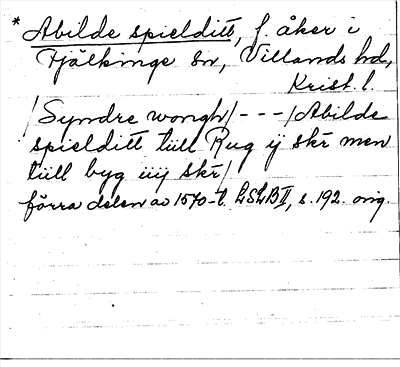 * Abilde spielditt, f. åker i
Fjälkinge sn, Villands hd,
Krist. l.
/Syndre wongh/ - - - /Abilde
spielditt tiill Rug ij skr men
tiill byg iiij skr/
förra delen av 1570-t. LSLB II, s. 192. orig.